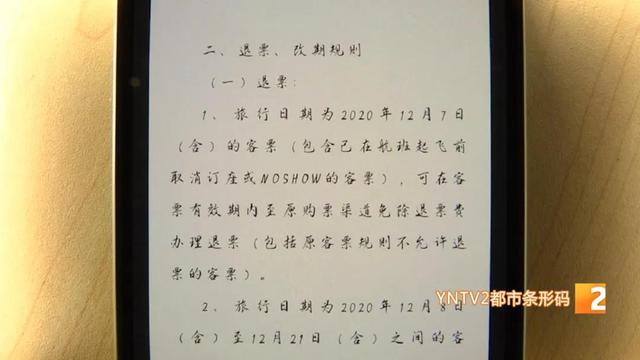 二、退票、改期规则
（一）退票：
1、旅行日期为2020年12月7日
（含）的客票（包含已在航班起飞前
取消订座或NOSHOW的客票），可在客
票有效期内至原购票渠道免除退票费
办理退票（包括原客票规则不允许退
票的客票）。
2、旅行日期为2020年12月8日
（含）至12月21日（含）之间的客
YNTV2都市条形码 2